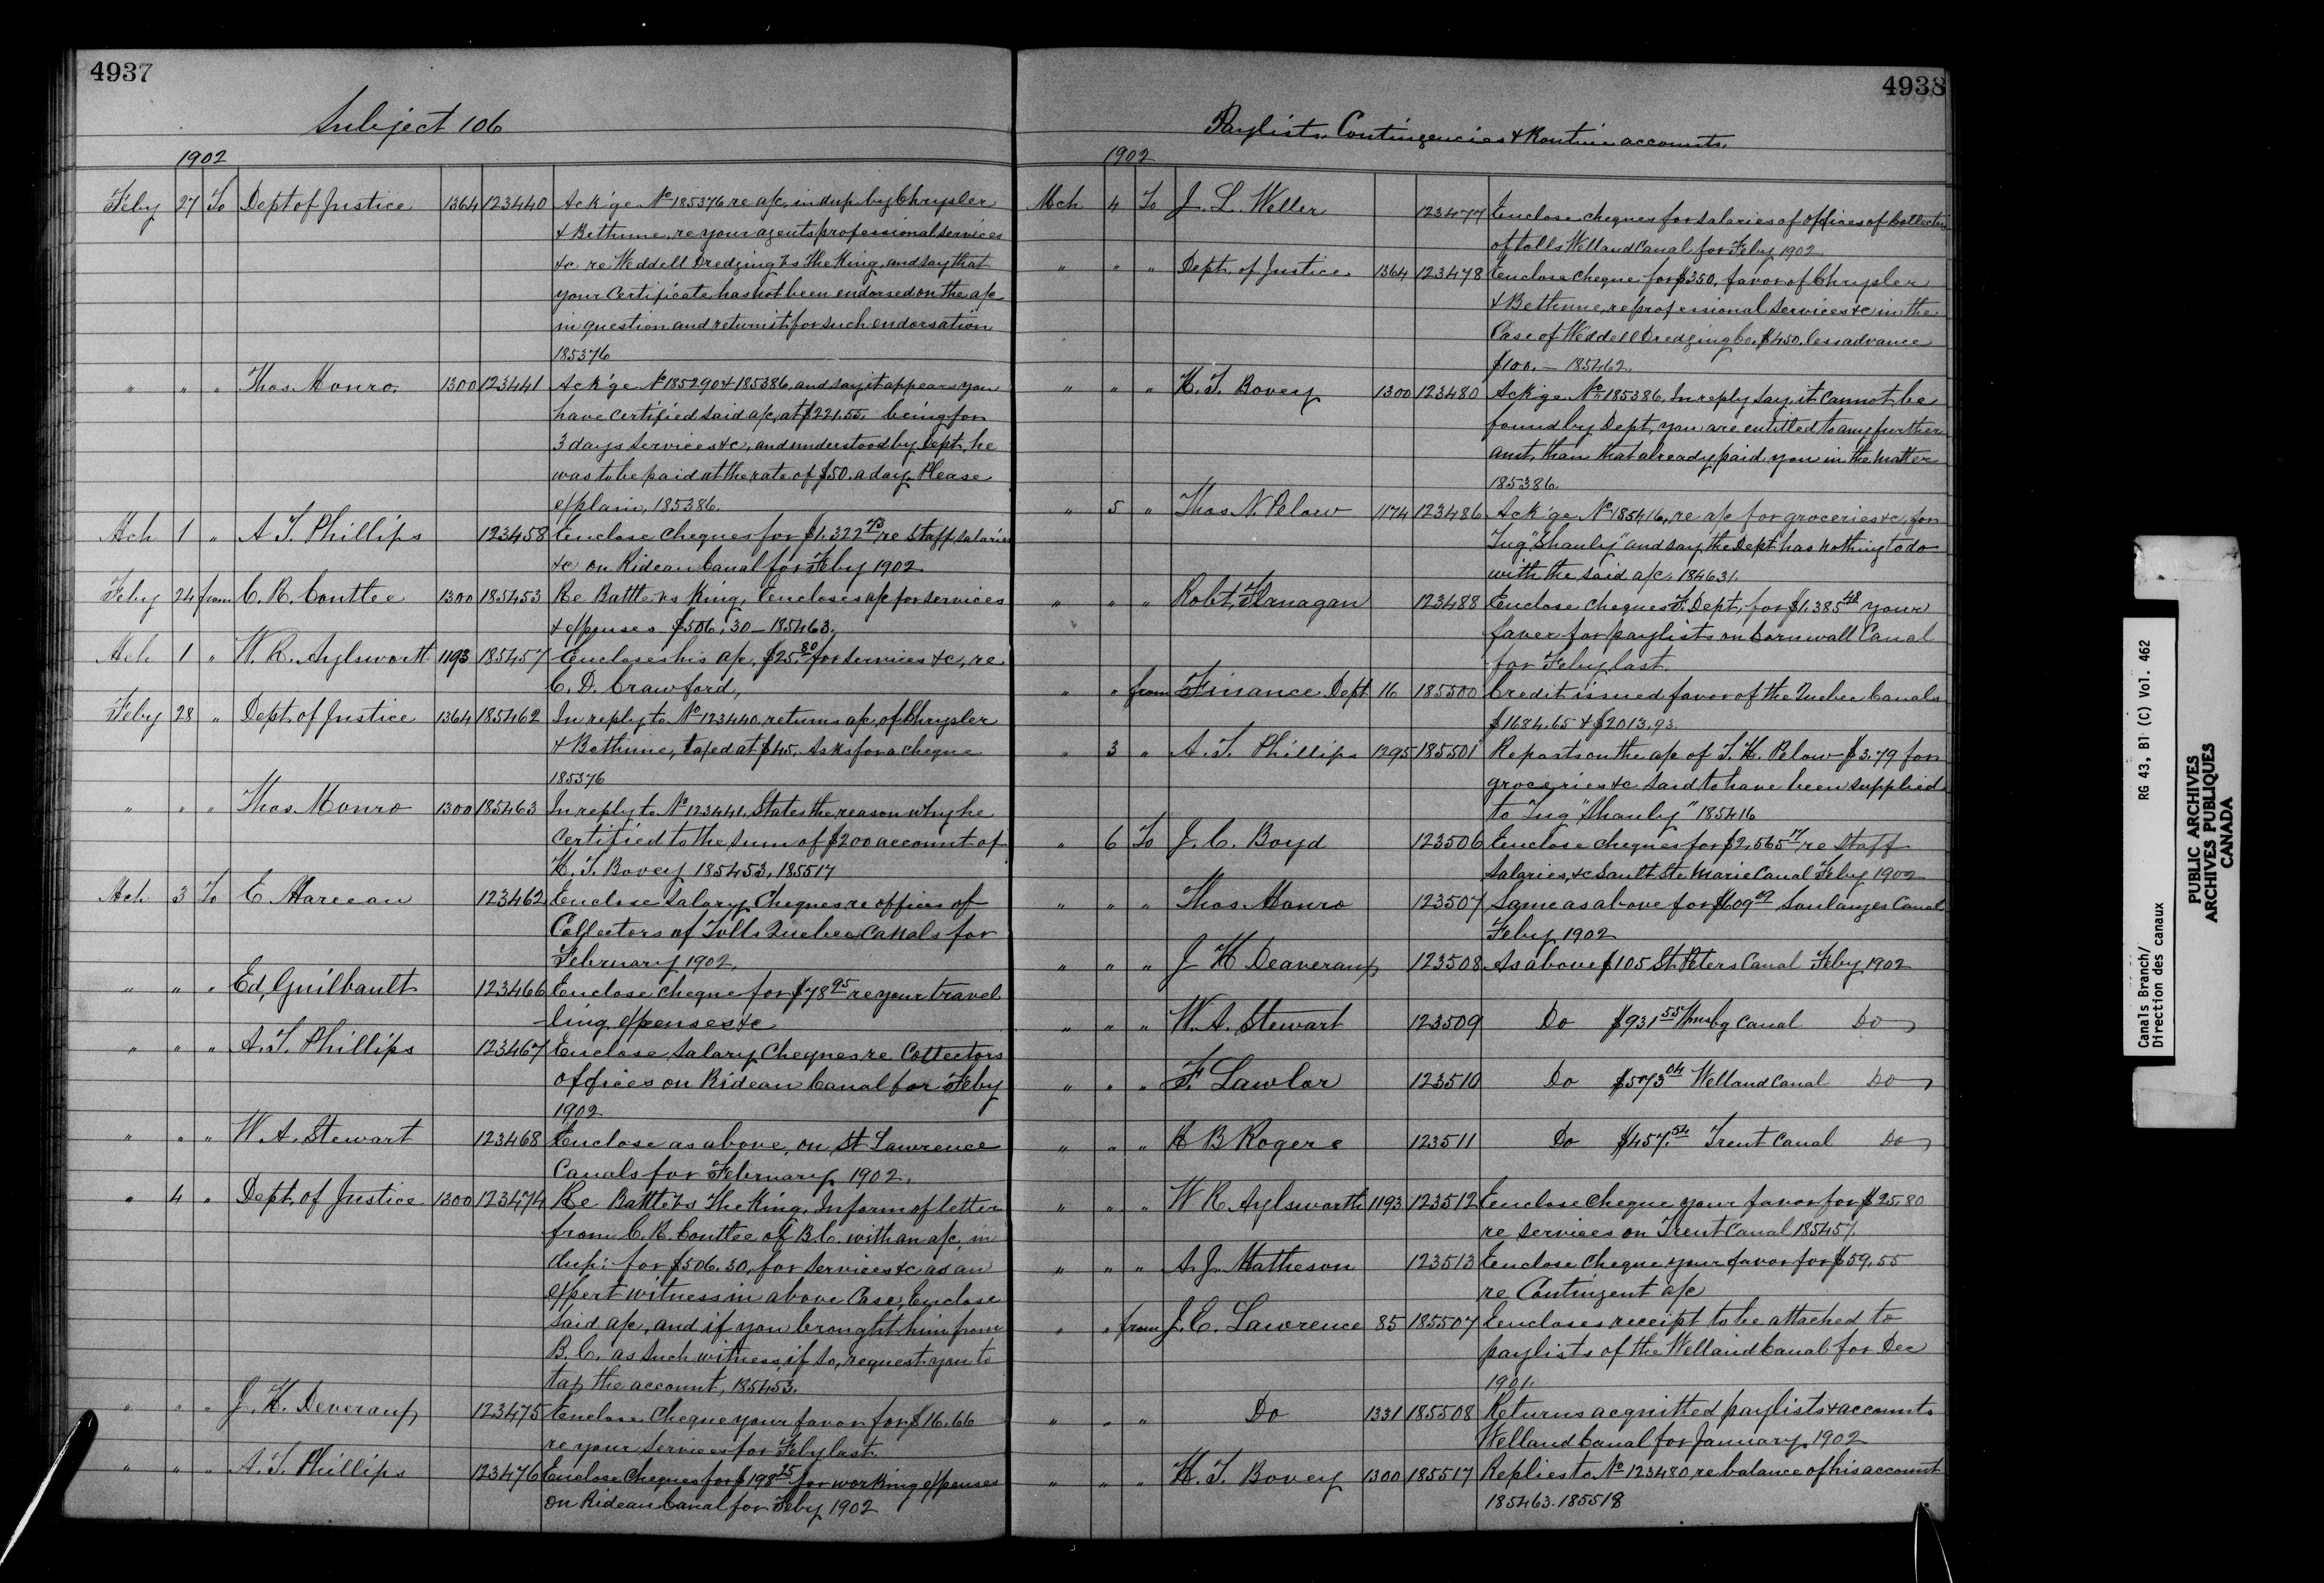 4937
Subject 106
1902
Feby 27 To Dept of Justice 1364 123440 Ack'ge No 185376 re a/c, in dup by Chrysler
& Bethune, re your agents professional services
&c re Weddell Dredging vs The King, and say that
your Certificate has not been endorsed on the a/c
in question and return it for such endorsation
185376
" " " Thos. Monro. 1300 123441 Ack'ge No 185290 & 185386, and say it appears you
have certified said a/c, at $221.55. being for
3 days services &c, and understood by Dept, he
was to be paid at the rate of $50. a day. Please
explain, 185386.
Mch 1 " A. T. Phillips 123458 Enclose cheques for $1.322.73 re Staff salaries
&c on Rideau Canal for Feby 1902
Feby 24 from C. R. Couttee 1300 185453 Re Batt vs King, Encloses a/c for services
& expenses $506.30 – 185463.
Mch 1 " W. R. Aylsworth 1193 185457 Encloses his a/c, $25.80 for services &c, re
C. D. Crawford,
Feby 28 " Dept. of Justice 1364 185462 In reply to No 123440. returns a/c, of Chrysler
& Bethune, taxed at $45. Asks for a cheque
185376
" " " Thos. Monro 1300 185463 In reply to No 123441. States the reason why he
certified to the sum of $200 account of
H. T. Bovey 185453, 185517
Mch 3 To E. Marceau 123462 Enclose Salary Cheques re offices of
Collectors of Tolls Quebec Canals for
February 1902.
" " " Ed, Guilbault 123466 Enclose cheque for $78.95 re your travel
ling expenses &c
" " " A. T. Phillips 123467 Enclose, Salary Cheques re Collectors
offices on Rideau Canal for Feby
1902
" " " W. A. Stewart 123468 Enclose as above, on St Lawrence
Canals for February 1902.
" 4 " Dept, of Justice 1300 123474 Re Batt vs The King. Inform of letter
from C. R. Couttee of B.C. with an a/c, in
dup: for $506.30, for services &c as an
expert witness in above case, Enclose
said a/c, and if you brought him from
B.C. as such witness, if so, request you to
tax the account, 185453.
" " " J. H. Deveraux 123475 Enclose Cheque your favor for $16.66
re your services for Feby last
" " " A. T. Phillips 123476 Enclose Cheques for $198.25 for working expenses
on Rideau Canal for Feby 1902
4938
Paylists, Contingencies & Routine accounts.
1902
Mch 4 To J. L. Weller 123477 Enclose cheques for salaries of offices of Collector
of tolls Welland Canal for Feby 1902
" " " Dept. of Justice 1364 123478 Enclose Cheque for $350, favor of Chrysler
& Bethune, re professional services &c in the
Case of Weddell Dredging Co. $450. less advance
$100. – 185462.
" " " H. T. Bovey 1300 123480 Ack'ge No 185386, In reply say, it cannot be
found by Dept, you are entitled to any further
amt, than that already paid you in the matter
185386.
" 5 " Thos. N. Pelow 1174 123486 Ack'ge No 185416, re a/c for groceries &c, for
Tug "Shanly" and say, the Dept has nothing to do
with the said a/c. 184631.
" " " Robt, Flanagan 123488 Enclose cheques F. Dept, for $1.385.48 your
favor for paylists on Cornwall Canal
for Feby last.
" " from Finance Dept 16 185500 Credit issued favor of the Quebec Canals
$1684.65 & $2013.93.
" 3 " A. T. Phillips 1295 185501 Reports on the a/c of T. H. Pelow $3.79 for
groceries &c said to have been supplied
to Tug "Shanly" 185416
" 6 To J. C. Boyd 123506 Enclose cheques for $2.565.17 re Staff
Salaries, &c Sault Ste Marie Canal Feby 1902
" " " Thos. Monro 123507 Same as above for $609.09 Soulanges Canal
Feby 1902
" " " J H Deaveraux 123508 As above $105 St Peters Canal Feby 1902
" " " W. A. Stewart 123509 Do $931.55 Wmsbg Canal Do
" " " F. Lawlor 123510 Do $573.04 Welland Canal Do
" " " R B Rogers 123511 Do $457.54 Trent Canal Do
" " " W R. Aylsworth 1193 123512 Enclose Cheque your favor for $25.80
re services on Trent Canal 185457.
" " " A. J. Matheson 123513 Enclose Cheque your favor for $59.55
re Contingent a/c
" " from J. E. Lawrence 85 185507 Encloses receipt to be attached to
paylists of the Welland Canal for Dec
1901.
" " " Do 1331 185508 Returns acquitted paylists & accounts
Welland Canal for January 1902
" " " H. T. Bovey 1300 185517 Replies to No 123480, re balance of his account
185463. 185518
Canals Branch/
Direction des canaux
RG 43, B1 (C) Vol. 462
PUBLIC ARCHIVES
ARCHIVES PUBLIQUES
CANADA